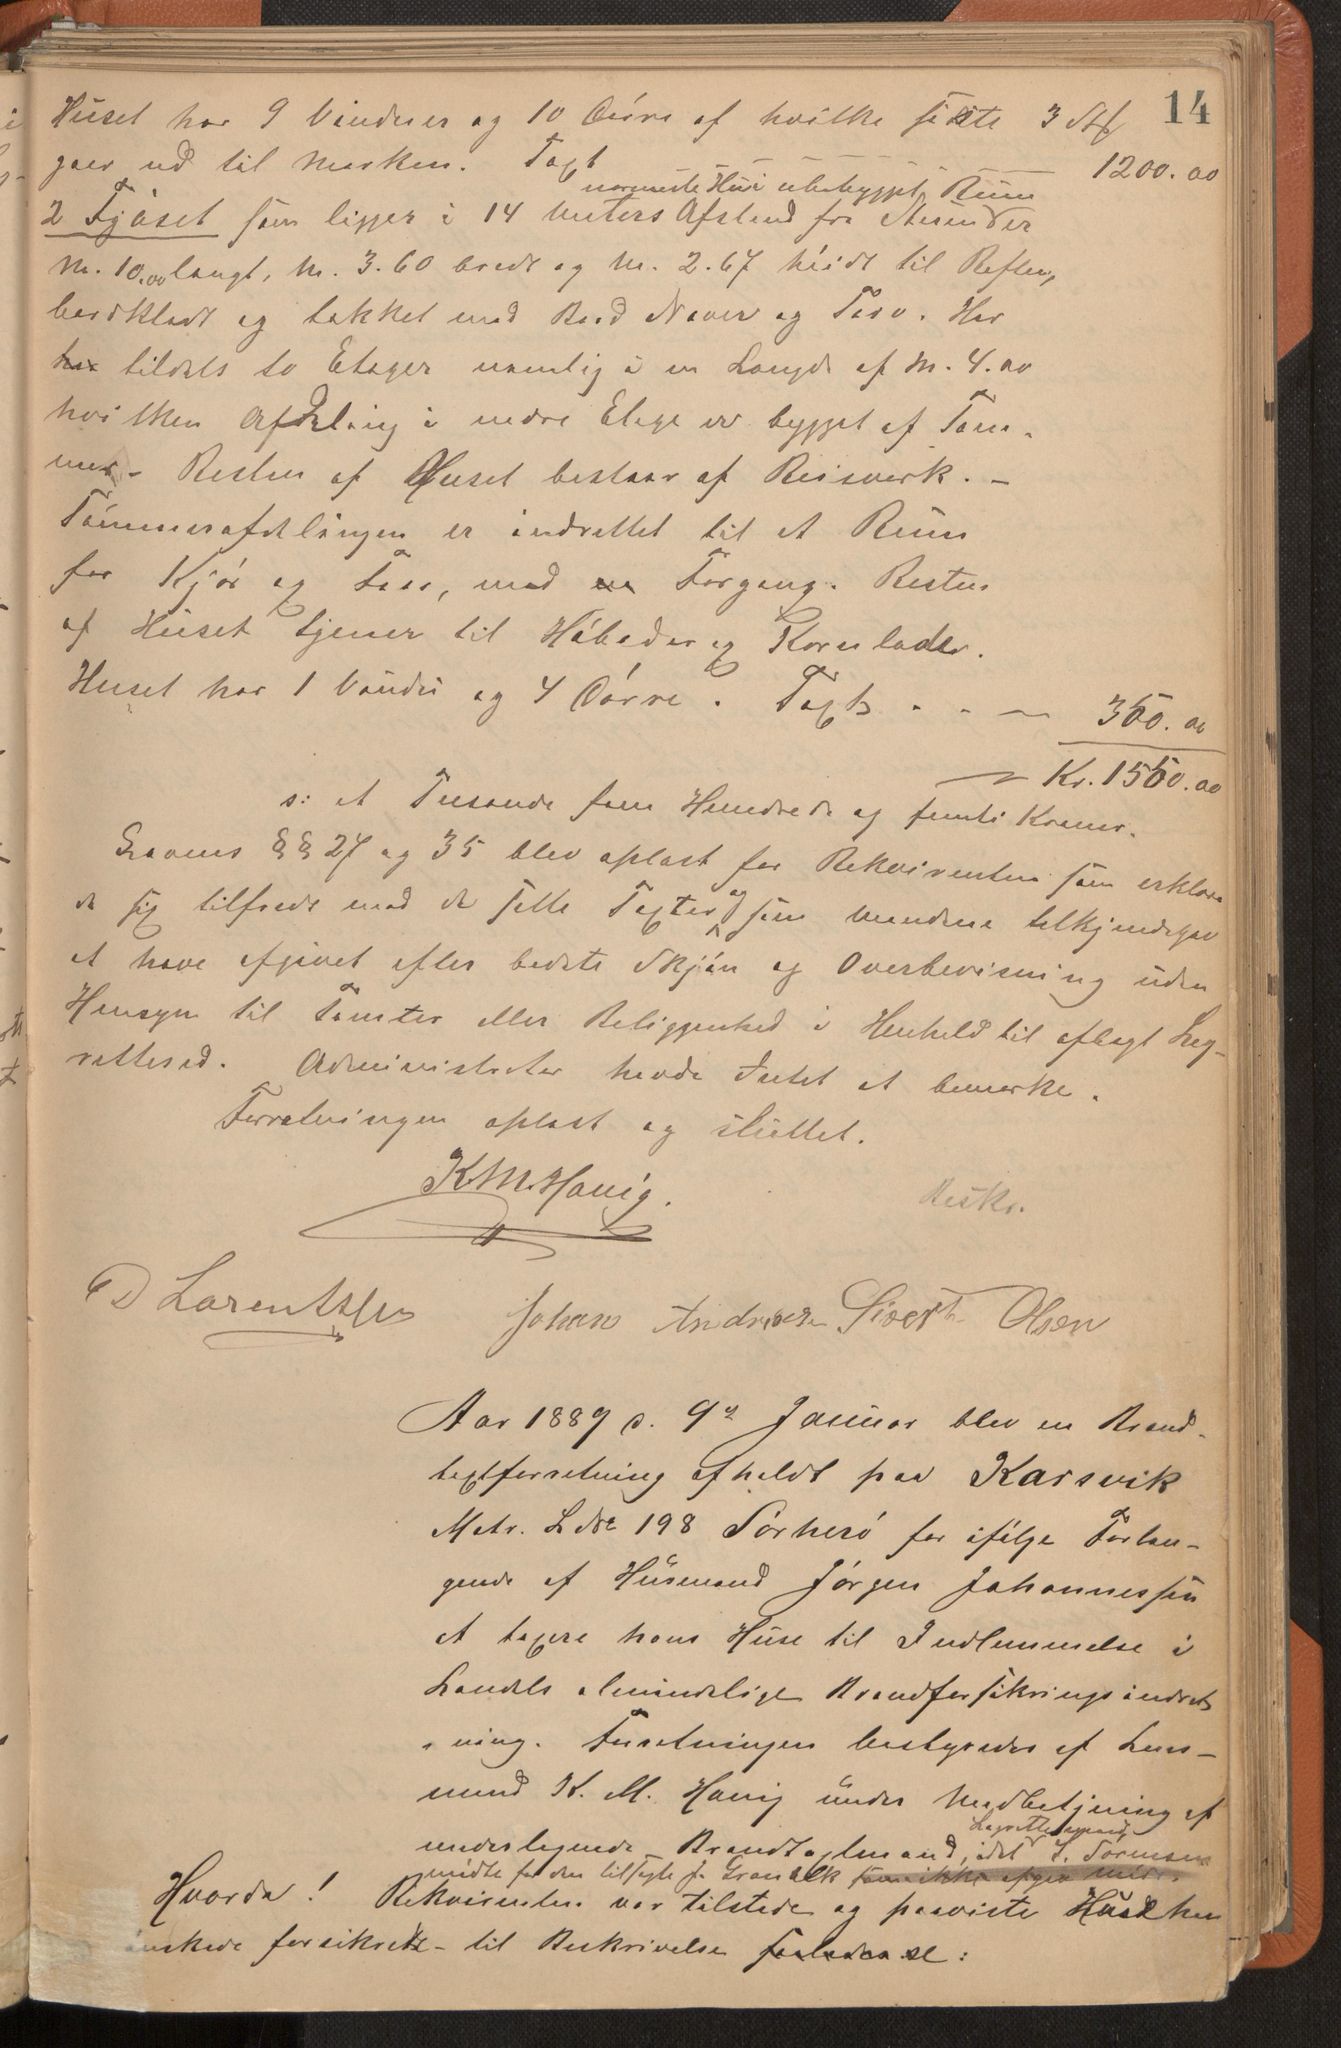 14
Huset har 9 Vinduer og 10 Dörre af hvilke sidste 3 Stk
gaar ud til Marken. Taxt 1200.00
nærmeste Huse ubebygget Rum
2 Fjöset som ligger i 14 Meters Afstand fra
M. 10.00 langt, M. 3.60 bredt og M. 2.67 höidt til Raften,
bordklædt og tækket med Bord Næver og Törv. Har
har tildels to Etager nemlig i en Længde af M. 4.00
hvilken Afdeling i nedre Etage er bygget af Töm-
mer - Resten af Huset bestaar af Reisverk. -
Tömmerafdelingen er indrettet til et Rum
for Kjör og Faar, med en Forgang. Resten
af Huset tjener til Höbeder og Kornlader.
Huset har 1 Vindu og 4 Dörre. Taxt . . — 350.00
Kr. 1550.00
s: et Tusande fem Hundrede og femti Kroner.
Lovens §§ 27 og 35 blev oplæst for Rekvirenten som erklære
de sig tilfreds med de satte Taxter og som Mændene tilkjendegav
at have afgivet efter bedste Skjön og Overbevisning uden
Hensyn til Tomter eller Beliggenhed i Henhold til aflagt Lag-
rettesed. Administrator havde Intet at bemærke.
Forretningen oplæst og sluttet.
K M Havig.
Beskr.
D Lorentzen Johan Andersen Sivert Olsen
Aar 1889 d. 9de Januar blev en Brand-
taxtforretning afholdt paa Karsvik
Matr. L No 198 Sörherö for ifölge Forlan-
gende af Husmand Jörgen Johannessen
at taxere hans Huse til Indlemmelse i
Landets almindelige Brandforsikringsindret-
ning. Forretningen bestyredes af Lens-
mand K. M. Havig under Medbetjening af
Lagrettesmand
underteguede Brandtaxtmænd, idet L. Sörensen
mödte for den tilsagte J. Grønbek som ikke
Hvorda! Rekvirenten var tilstede og paaviste Huse han
önskede forsikrede - til Beskrivelse saaledes: